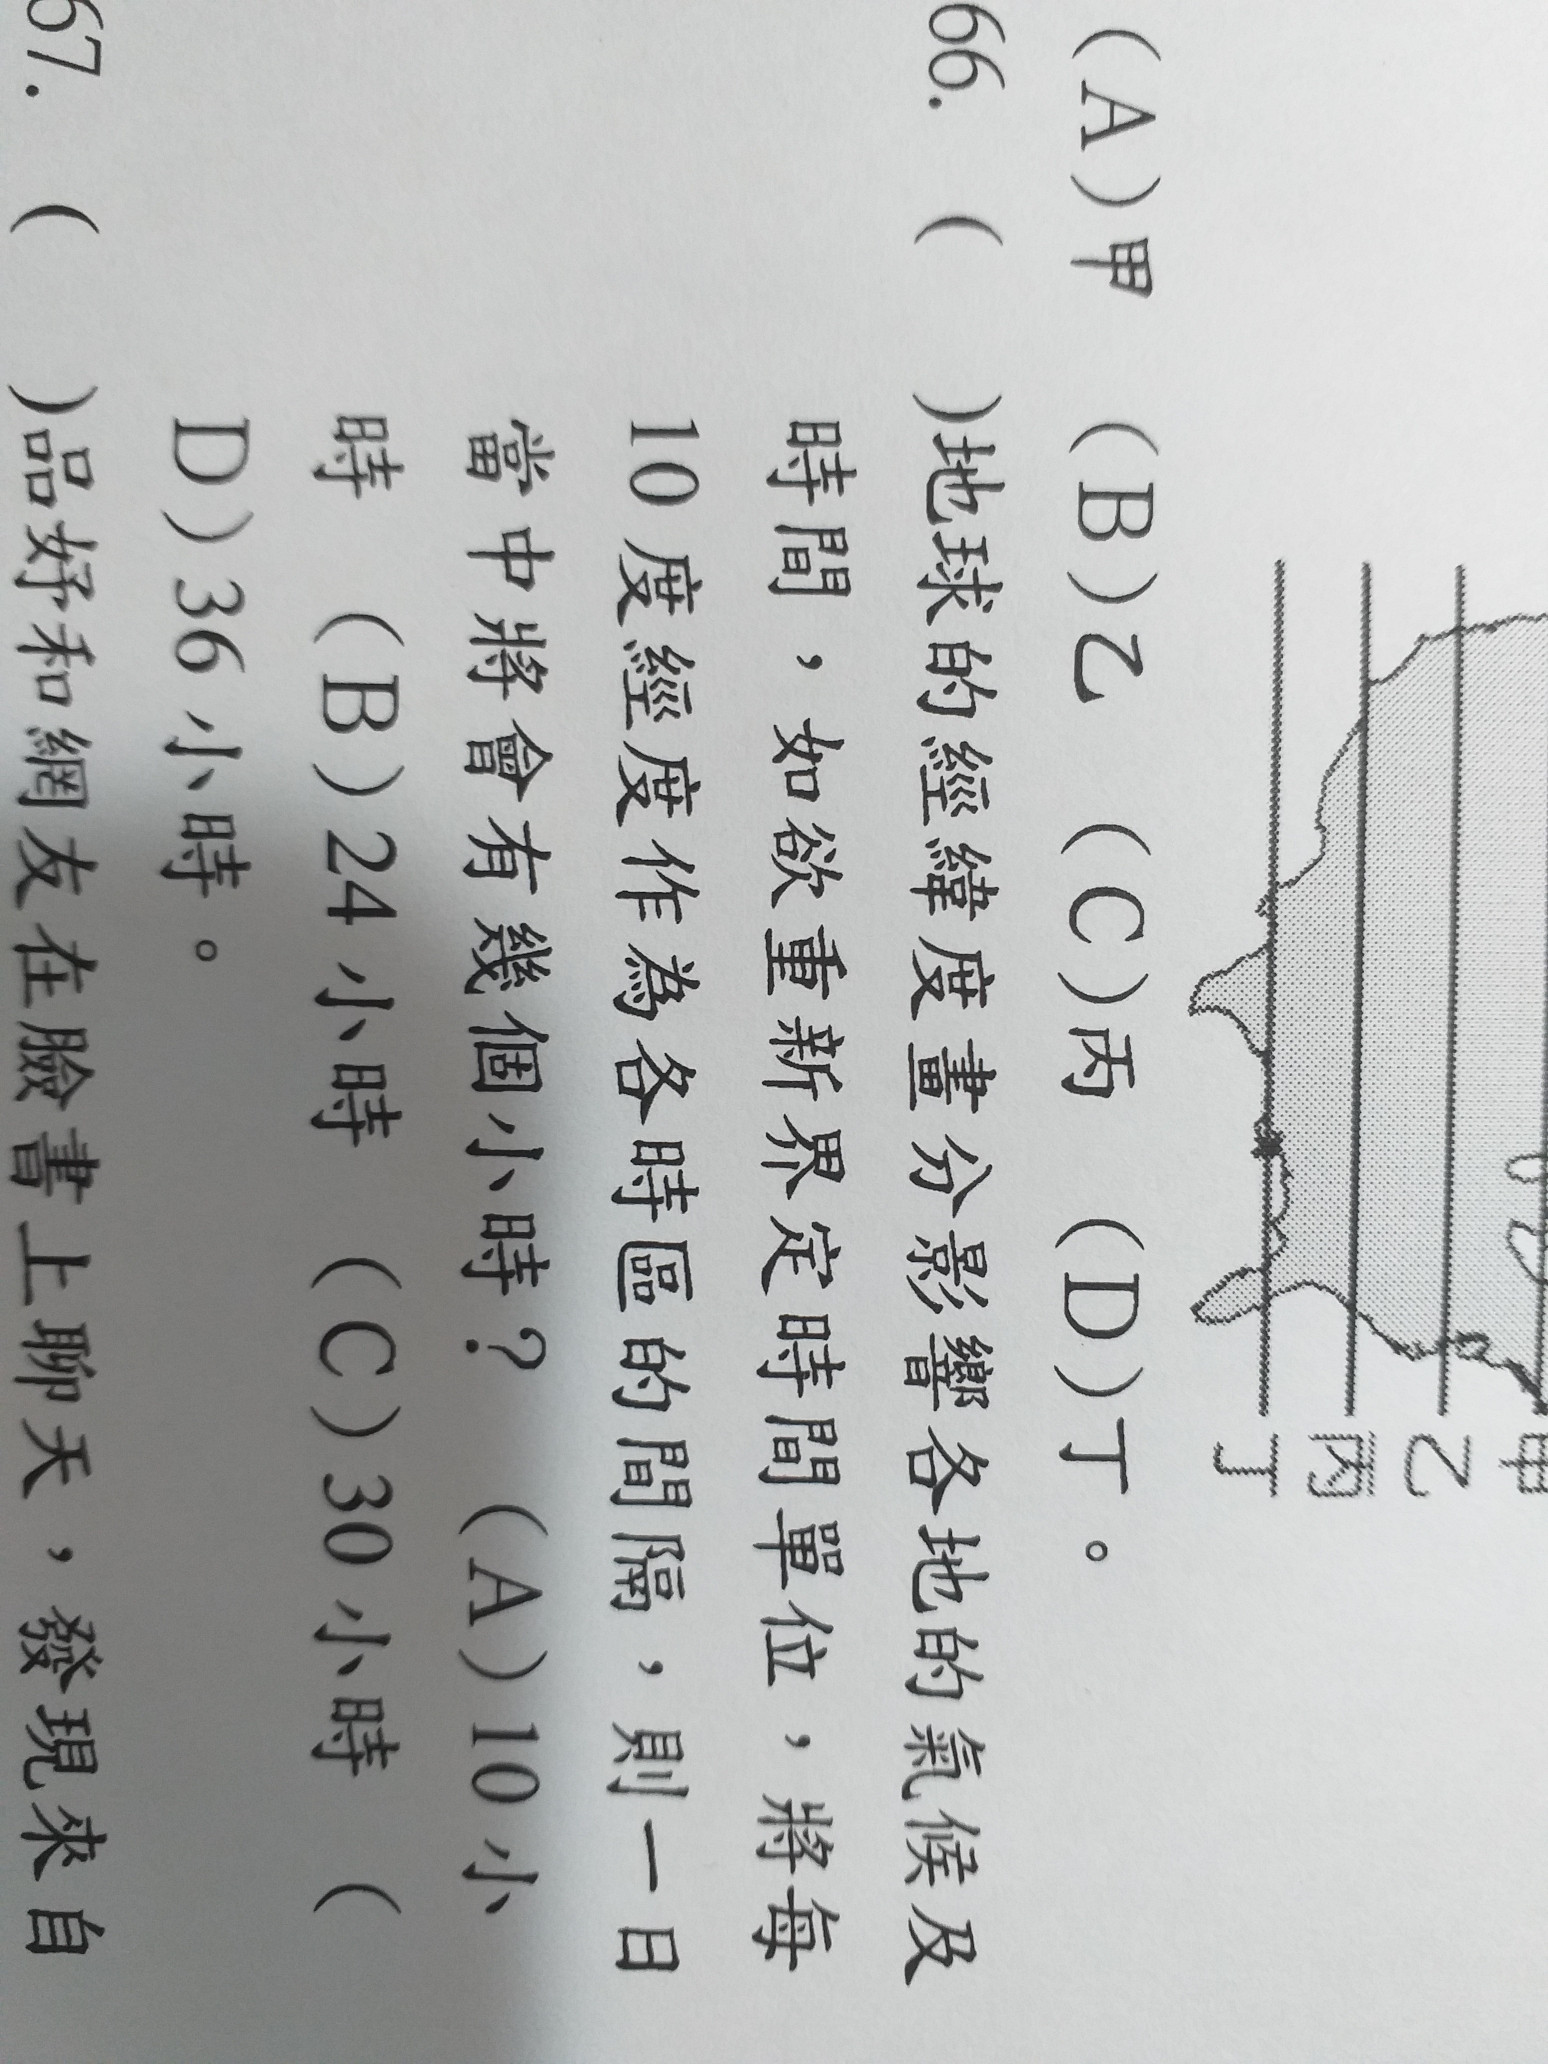 甲
乙
丙
丁
(A)甲 (B)乙 (C)丙 (D)丁。
66. ( )地球的經緯度畫分影響各地的氣候及
時間，如欲重新界定時間單位，將每
10 度經度作為各時區的間隔，則一日
當中將會有幾個小時？ (A)10 小
時 (B)24 小時 (C)30 小時 (
D)36 小時。
67. ( )品妤和網友在臉書上聊天，發現來自